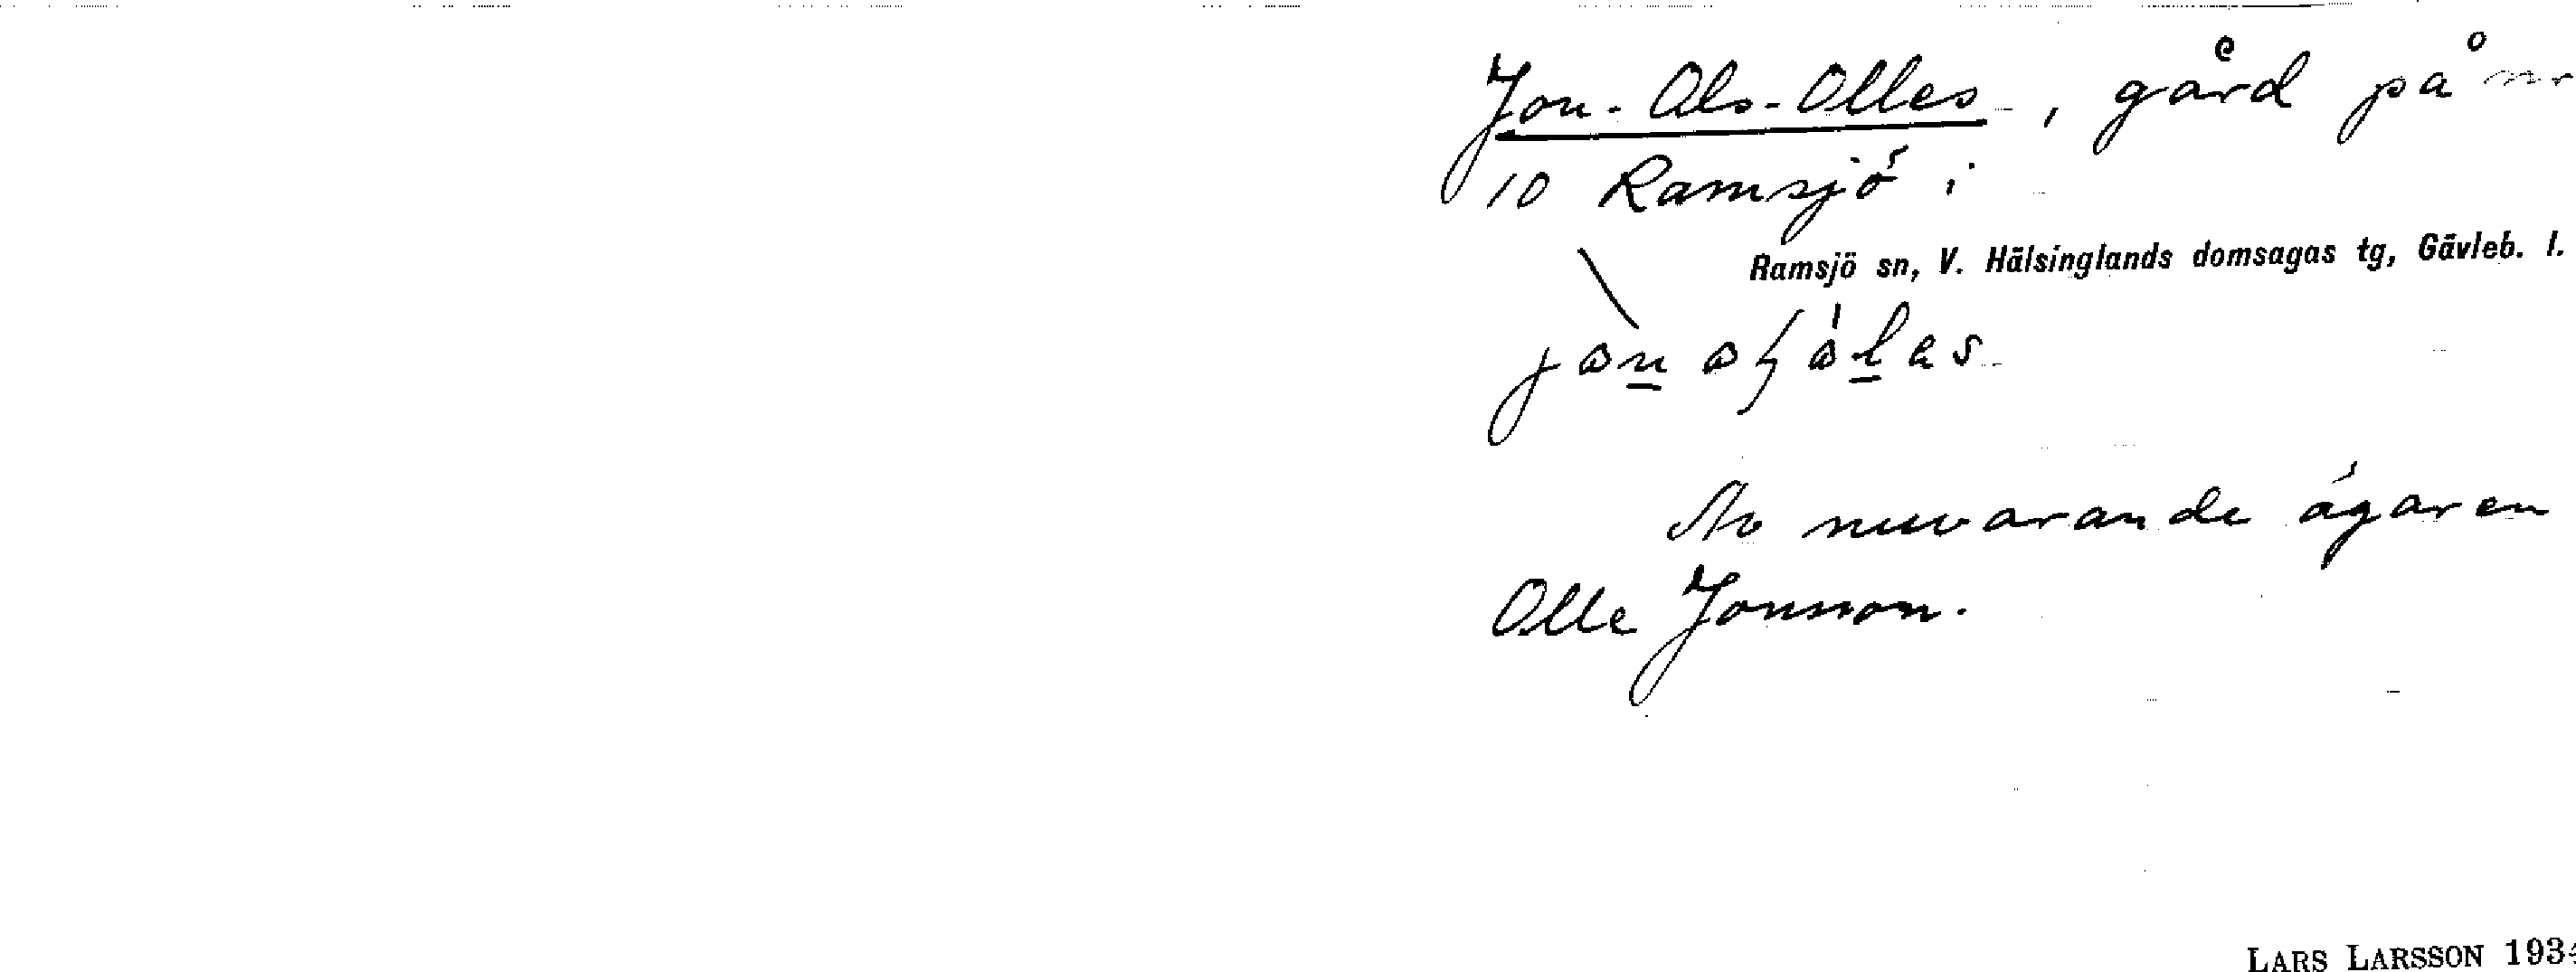 Jon-Ols-Olles, gård på nr
10 Ramsjö i
Ramsjö sn, V. Hälsinglands domsagas tg, Gävleb. l.
Av nuvarande ägaren
Olle Jonsson.
LARS LARSSON 193